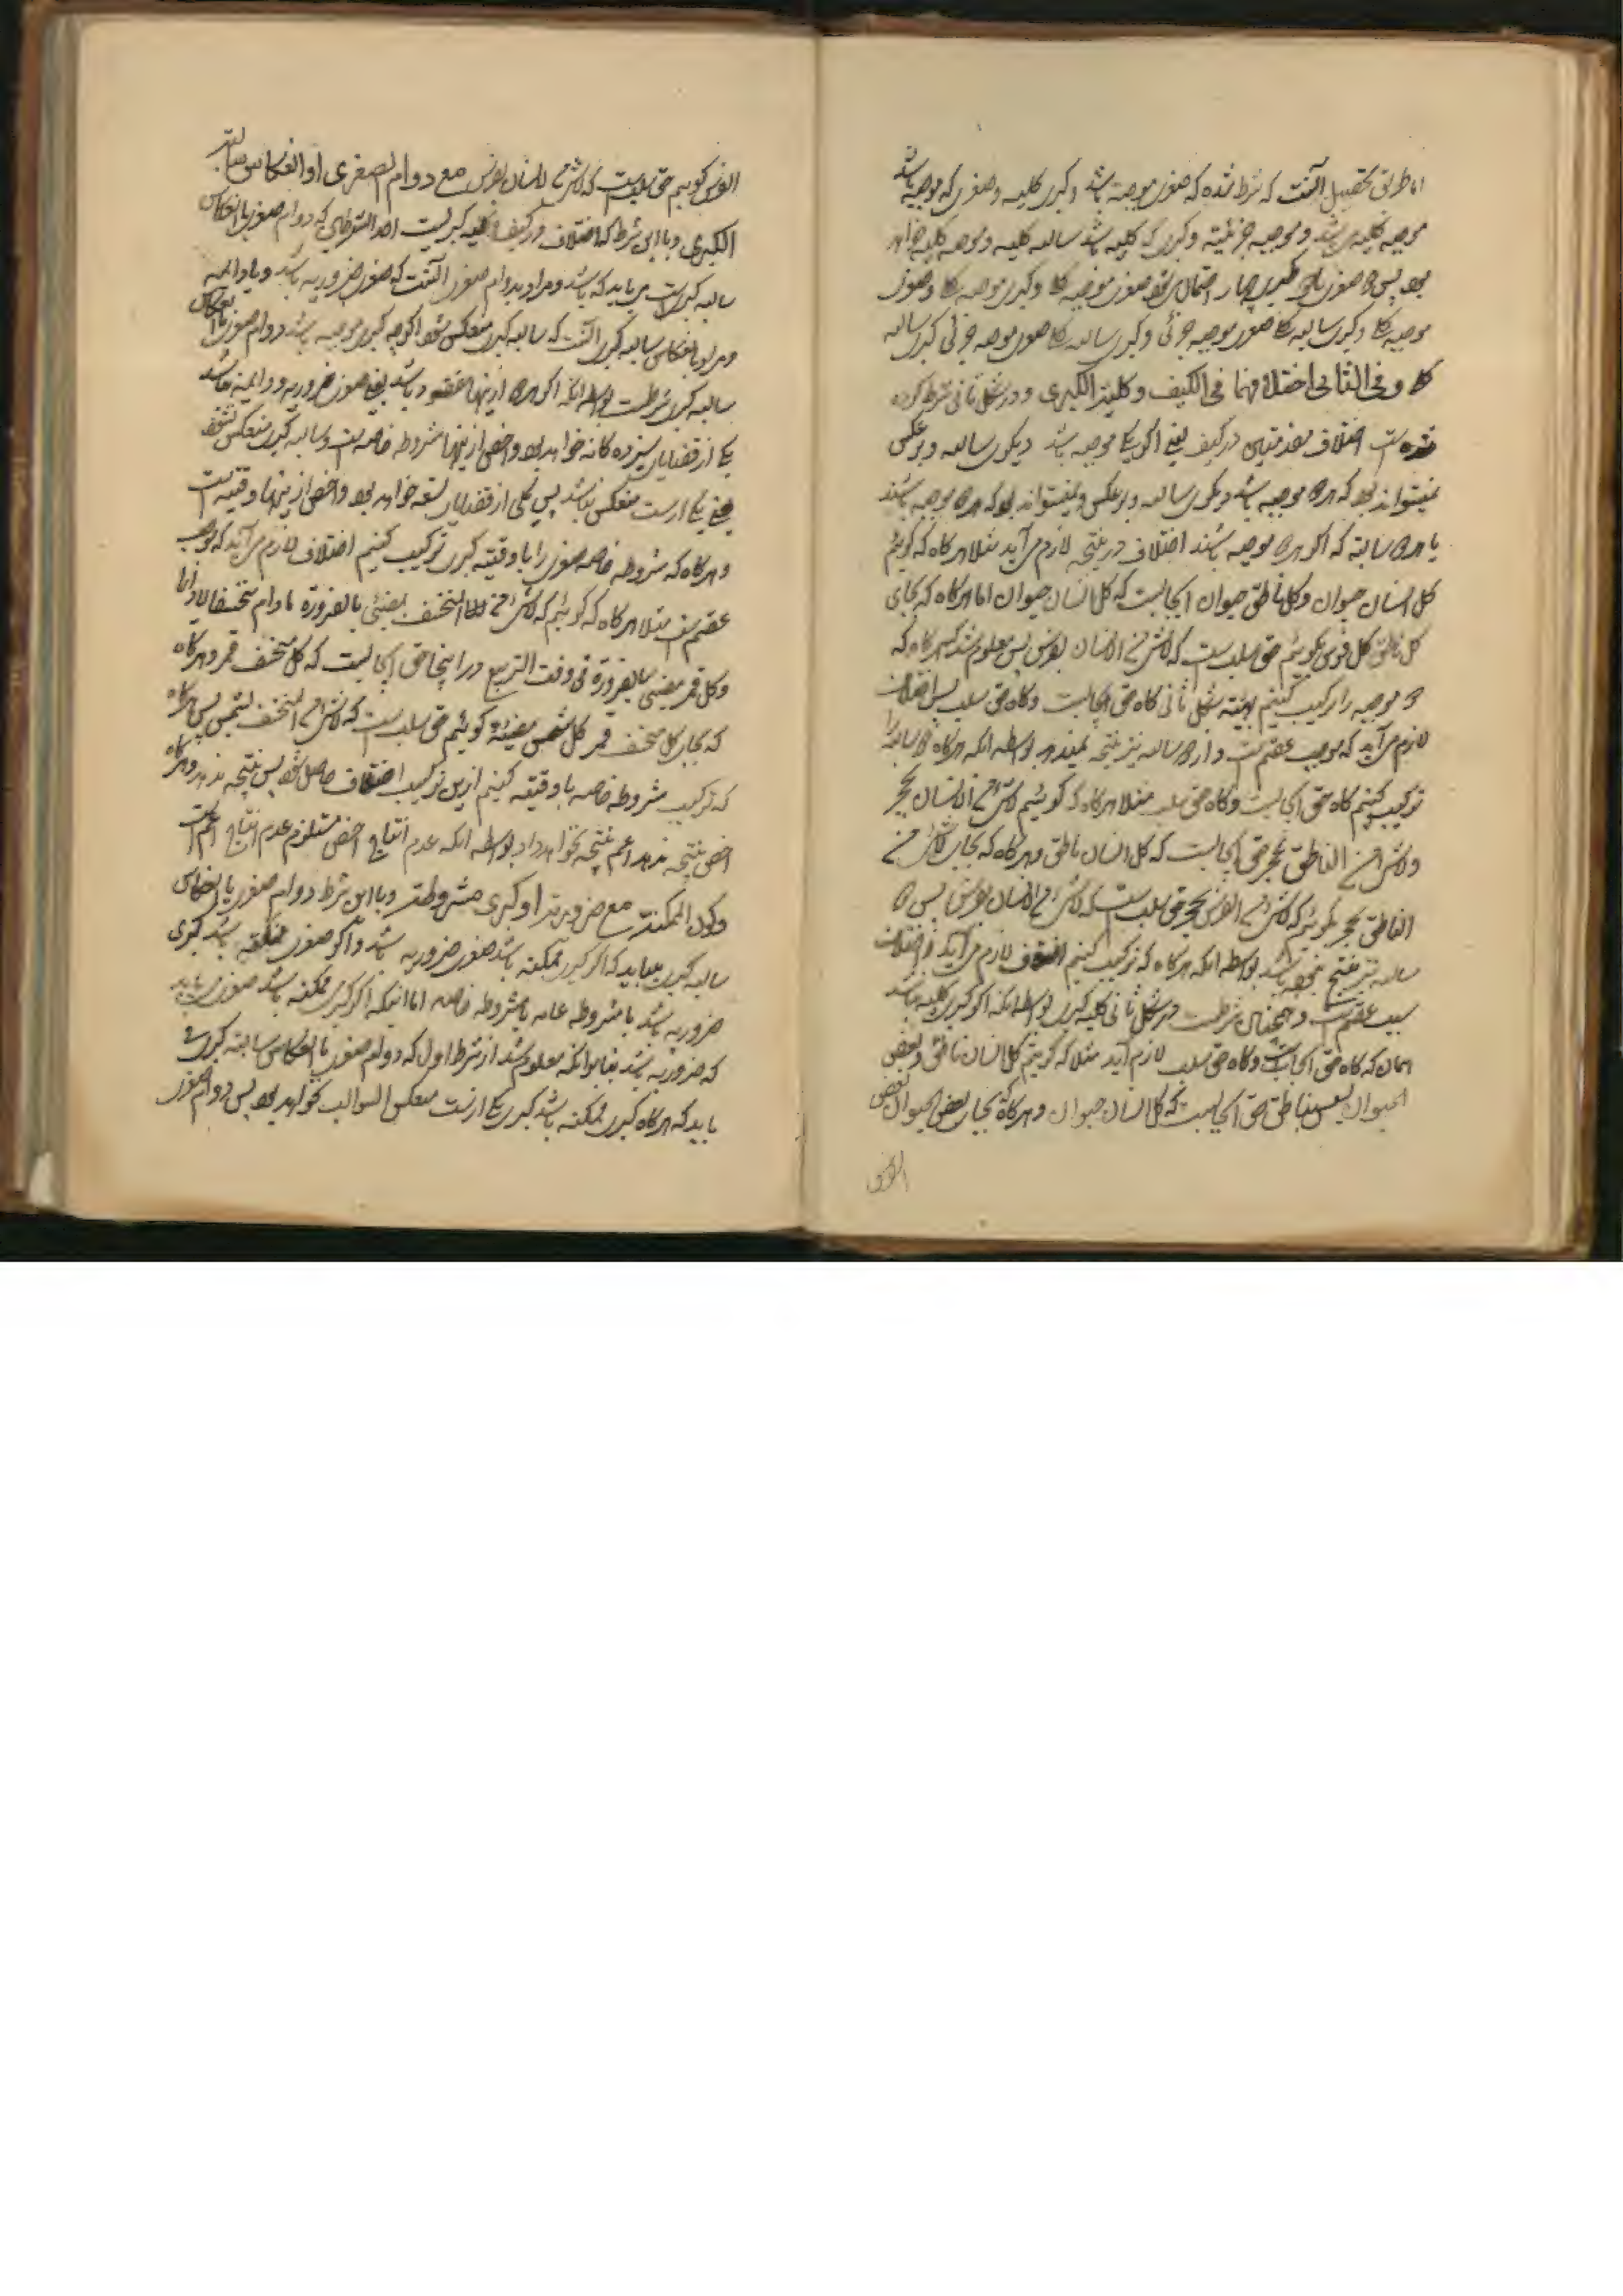 اما طریق تحصیل آنست که شرط شده که صغری موجبه باشد و کبری کلیه و صغری که موجبه باشد
موجبه کلیه می باشد و موجبه جزئیه و کبری که کلیه باشد سالبه کلیه و موجبه کلیه خواهد
بود پس صغری با کبری چهار احتمال صغری موجبه کلی و کبری موجبه کلی و صغری
موجبه کلی و کبری سالبه کلی صغری موجبه جزئی و کبری سالبه کلی صغری موجبه جزئی کبری سالبه
کلی وفی الثانی اختلافهما فی الکیف وکلیة الکبری و در شکل ثانی شرط کرده
شده است اختلاف مقدمتین در کیف یعنی اگر یکی موجبه باشد دیگری سالبه و بر عکس
نمیتواند بود که هر دو موجبه باشد و دیگری سالبه و بر عکس و نمیتواند بود که هر دو موجبه باشند
یا هر دو سالبه که اگر هر دو موجبه باشند اختلاف در نتیجه لازم می آید مثلا هرگاه که گوئیم
کل انسان حیوان وکل ناطق حیوان ایجابست که کل انسان حیوان اما هرگاه که بجای
کل ناطق کل فرس بگوئیم حق سلب است که لاشئ من الانسان بفرس پس معلوم شد که هرگاه که
دو موجبه را ترکیب کنیم بهیئة شکل ثانی گاه حق ایجابست و گاه حق سلب پس اختلاف
لازم می آید که موجب عقم است و از دو سالبه نیز نتیجه نمیدهد بواسطه آنکه هرگاه دو سالبه را
ترکیب کنیم گاه حق ایجابست و گاه حق سلب مثلا هرگاه که گوئیم لاشئ من الانسان بحجر
ولاشئ من الناطق بحجر حق ایجابست که کل انسان ناطق و هرگاه که بجای لاشئ من
الناطق بحجر بگوئیم که لاشئ من الفرس بحجر حق سلب است که لاشئ من الانسان بفرس پس دو
سالبه نیز منتج نمی باشد بواسطه آنکه هرگاه که ترکیب کنیم اختلاف لازم می آید و اختلاف
سبب عقم است و همچنان شرط است در شکل ثانی کلیه کبری بواسطه آنکه اگر کبری کلیه نباشد
همان که گاه حق ایجابست و گاه حق سلب لازم آید مثلا که گوئیم کل انسان ناطق وبعض
الحیوان لیس بناطق حق ایجابست که کل انسان حیوان و هرگاه که بجای بعض الحیوان بعض
الفرس
الفرس گوییم حق سلب است که لاشئ من الانسان بفرس مع دوام الصغری او انعکاس سالبة
الکبری و با این شرط که اختلاف در کیف و کلیه کبریست احد الشرطین که دوام صغری یا انعکاس
سالبه کبری است می باید که باشد و مراد بدوام صغری آنست که صغری ضروریه باشد و یا دائمه
و مراد بانعکاس سالبه کبری آنست که سالبه کبری منعکس شود اگرچه کبری موجبه باشد دوام صغری یا انعکاس
سالبه کبری شرط است بواسطه آنکه اگر هر دو ازینها مفقود باشد یعنی صغری ضروریه و دائمه نباشد
یکی از قضایای سیزده گانه خواهد بود و اخص ازینها مشروطه خاصه است و سالبه کبری منعکس نشود
یعنی یکی از ست منعکس نباشد پس یکی از قضایای تسعه خواهد بود و اخص ازینها وقتیه است
و هرگاه که مشروطه خاصه صغری را با وقتیه کبری ترکیب کنیم اختلاف لازم می آید که موجب
عقم است مثلا هرگاه که گوئیم که لاشئ من المنخسف بمضیئ بالضرورة مادام منخسفا لادائما
وکل قمر مضیئ بالضرورة فی وقت التربیع در اینجا حق ایجابست که کل منخسف قمر و هرگاه
که بجای کل قمر کل شمس مضیئة گوئیم حق سلب است که لاشئ من المنخسف بشمس پس هرگاه
که ترکیب مشروطه خاصه با وقتیه کنیم ازین ترکیب اختلاف حاصل شود پس نتیجه ندهد و هرگاه
اخص نتیجه ندهد اعم نتیجه نخواهد داد بواسطه آنکه عدم انتاج اخص مستلزم عدم انتاج اعم است
وکون الممکنة مع ضروریة او کبری مشروطة و با این شرط دوام صغری یا انعکاس
سالبه کبری میباید که اگر کبری ممکنه باشد صغری ضروریه باشد و اگر صغری ممکنه باشد کبری
ضروریه باشد یا مشروطه عامه یا مشروطه خاصه اما اینکه اگر کبری ممکنه باشد صغری می باید
که ضروریه باشد بنابر آنکه معلوم شد از شرط اول که دوام صغری یا انعکاس سالبه کبری
باید که هرگاه کبری ممکنه باشد کبری یکی از ست منعکس السوالب نخواهد بود پس دوام صغری